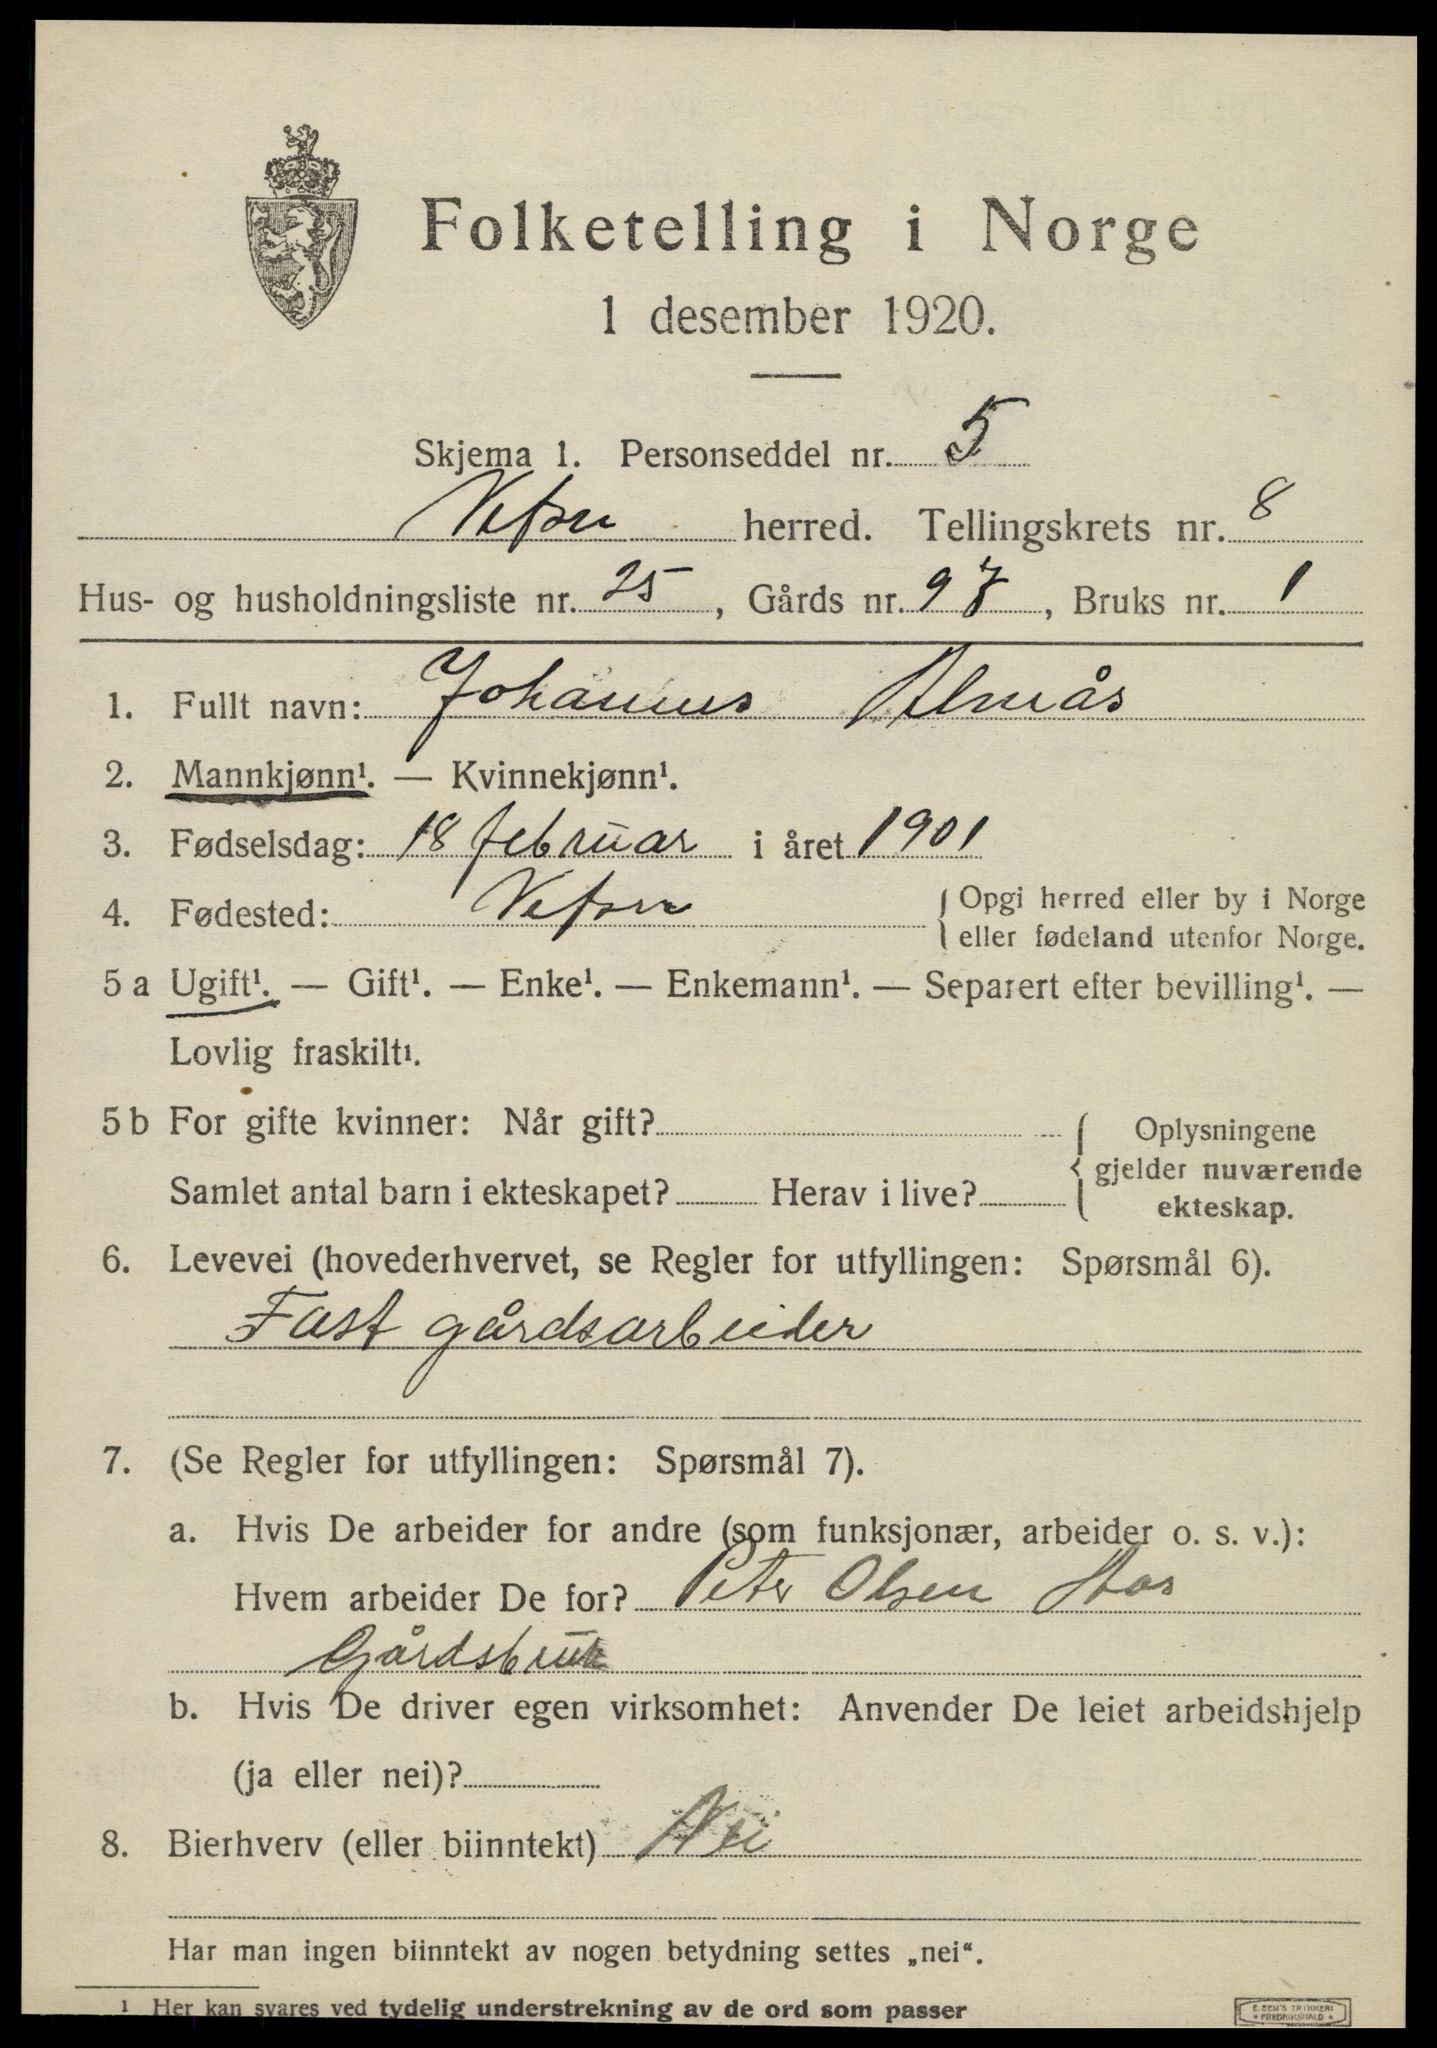 Folketelling i Norge
1 desember 1920.
Skjema 1. Personseddel nr. 5
Vefsn herred. Tellingskrets nr. 8
Hus- og husholdningsliste nr. 25, Gårds nr. 97, Bruks nr. 1
1. Fullt navn: Johannes Almås
2. Mannkjønn¹. — Kvinnekjønn¹.
3. Fødselsdag: 18 februar i året 1901
4. Fødested: Vefsn
Opgi herred eller by i Norge
eller fødeland utenfor Norge.
5 a Ugift¹. — Gift¹. — Enke¹. — Enkemann¹. — Separert efter bevilling¹. —
Lovlig fraskilt¹.
5 b For gifte kvinner: Når gift?
Samlet antal barn i ekteskapet? Herav i live?
Oplysningene
gjelder nuværende
ekteskap.
6. Levevei (hovederhvervet, se Regler for utfyllingen: Spørsmål 6).
Fast gårdsarbeider
7. (Se Regler for utfyllingen: Spørsmål 7).
a. Hvis De arbeider for andre (som funksjonær, arbeider o. s. v.):
Hvem arbeider De for? Peter Olsen
Gårdsbruk
b. Hvis De driver egen virksomhet: Anvender De leiet arbeidshjelp
(ja eller nei)?
8. Bierhverv (eller biinntekt) Nei
Har man ingen biinntekt av nogen betydning settes „nei“.
¹ Her kan svares ved tydelig understrekning av de ord som passer
E. SEM'S TRYKKERI
FREDRIKSHALD